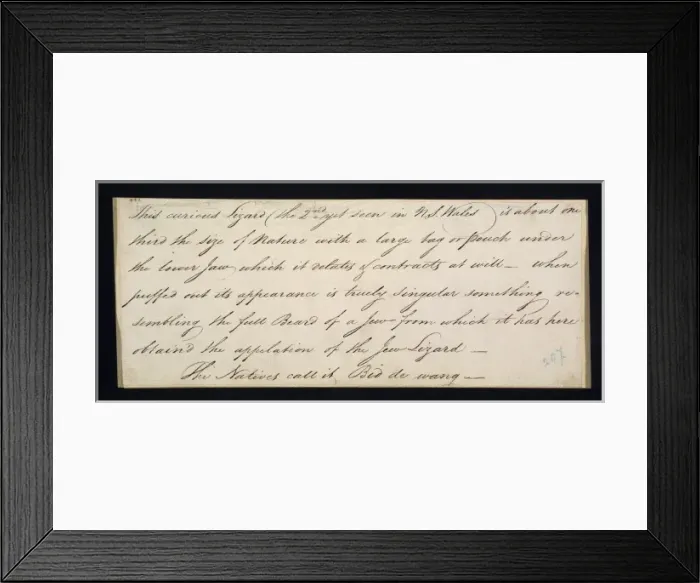 This curious Lizard (the 2nd yet seen in N.S. Wales) is about one
third the size of Nature with a large bag or pouch under
the lower Jaw which it dilates & contracts at will — when
puffed out its appearance is truely singular something re-
sembling the full Beard of a Jew from which it has here
obtaind the appelation of the Jew Lizard —
The Natives call it Bid de wang —
207